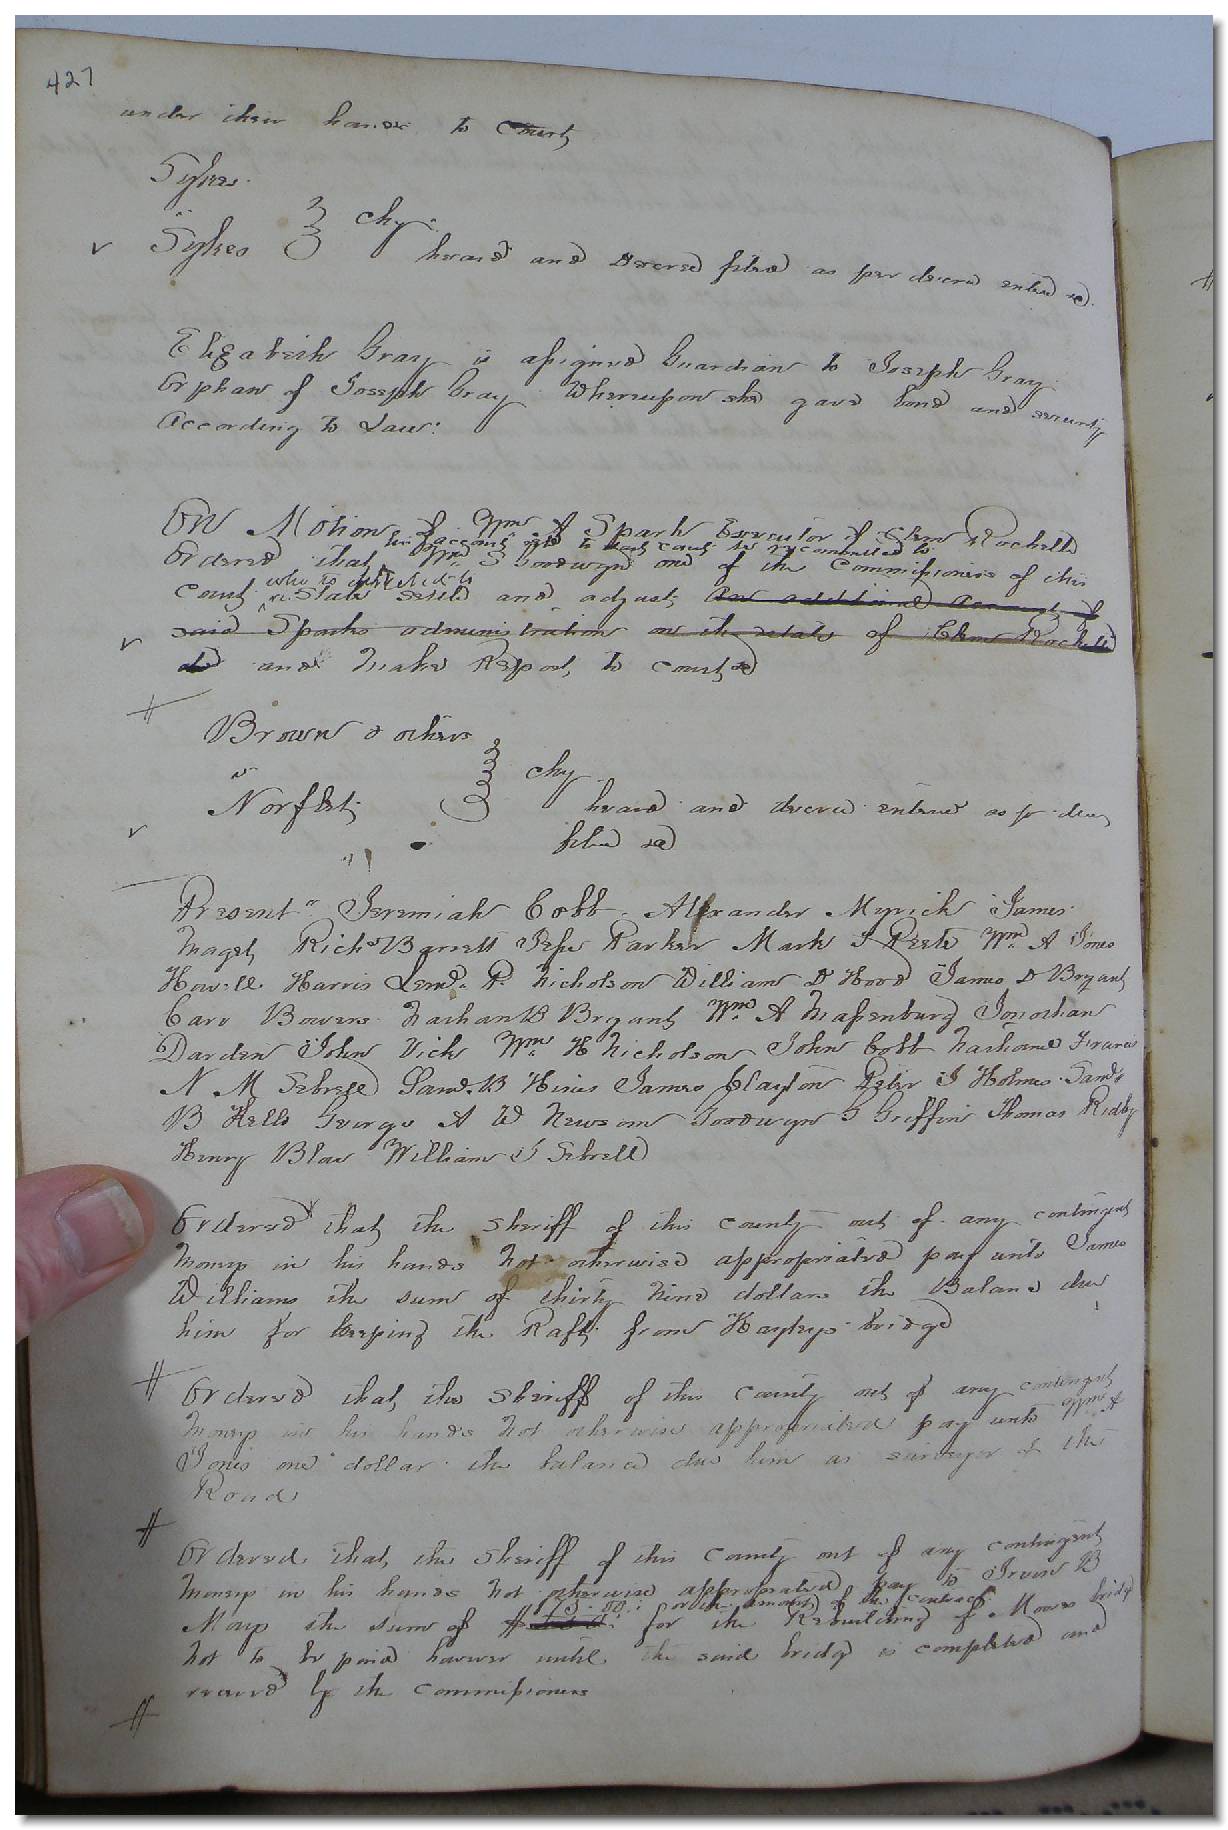 427
under their hands to Court
Sykes
vs
Sykes } chy
heard and Decree filed as per decree entered &c.
Elizabeth Gray is assigned Guardian to Joseph Gray
Orphan of Joseph Gray Whereupon she gave bond and security
According to Law.
On Motion of Wm A Spark Executor of Clem Rochelle
Ordered that Wm S Goodwyn one of the Commissioners of this
Court who is directed to state settle and adjust an additional account of
said Sparks administration on the estate of Clem Rochelle
dd and make Report to court &c
Brown & others
vs
Norfleet } chy
heard and decree entered as pr decree
filed &c
Present Jeremiah Cobb Alexander Myrick James
Maget Richd Barrett Jesse Parker Mark J Reese Wm A Jones
Howell Harris Lemd. R. Nicholson William D Hood James D Bryant
Carr Bowers Nathan B Bryant Wm A Massenburg Jonathan
Darden John Vick Wm H Nicholson John Cobb Nathaniel Francis
N M Sebrell Saml. B Hines James Clayton Peter J Holmes Saml.
B Kello George A W Newsom Goodwyn G Griffin Thomas Ridley
Henry Blow William J Sebrell
Ordered that the sheriff of this county out of any contingent
money in his hands not otherwise appropriated pay unto James
Williams the sum of thirty nine dollars the Balance due
him for keeping the Raft from Hayleys bridge
Ordered that the sheriff of this County out of any contingent
Money in his hands not otherwise appropriated pay unto Wm A
Jones one dollar the balance due him as surveyor of the
Road
Ordered that the sheriff of this County out of any contingent
money in his hands not otherwise appropriated pay to Irvin B
or the amount of the contract
May the sum of $ for the Rebuilding of Moores bridge
not to be paid however until the said bridge is completed and
received by the commissioners